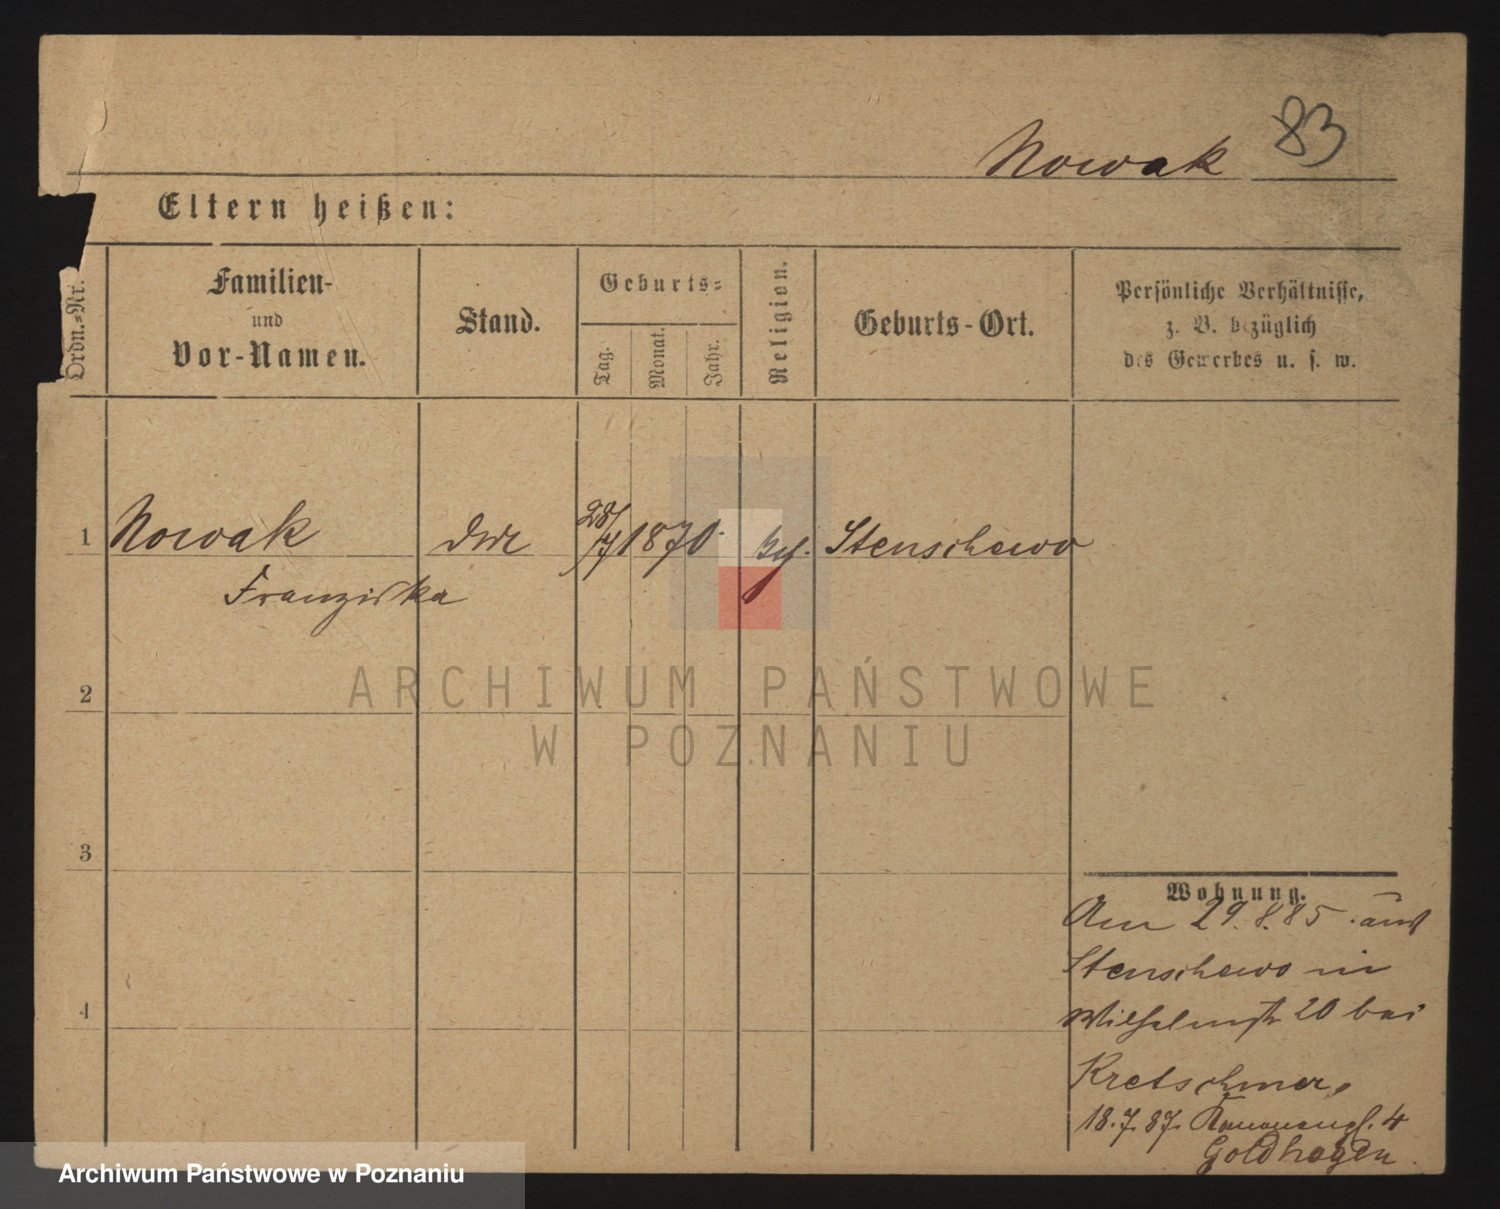 Nowak 83
Eltern heißen:
Ordn.-Nr.
Familien-
und
Vor-Namen.
Stand.
Geburts-
Tag.
Monat.
Jahr.
Religion.
Geburts-Ort.
Persönliche Verhältnisse,
z. B. bezüglich
des Gewerbes u. s. w.
1 Nowak 28/7 1870 Stenschewo
Franziska
2
3
4
ARCHIWUM PAŃSTWOWE
W POZNANIU
Wohnung.
Am 29.8.85. aus
Stenschewo in
Wilhelmstr 20 bei
Kretschmer,
18.7.87. 4
Goldhagen.
Archiwum Państwowe w Poznaniu